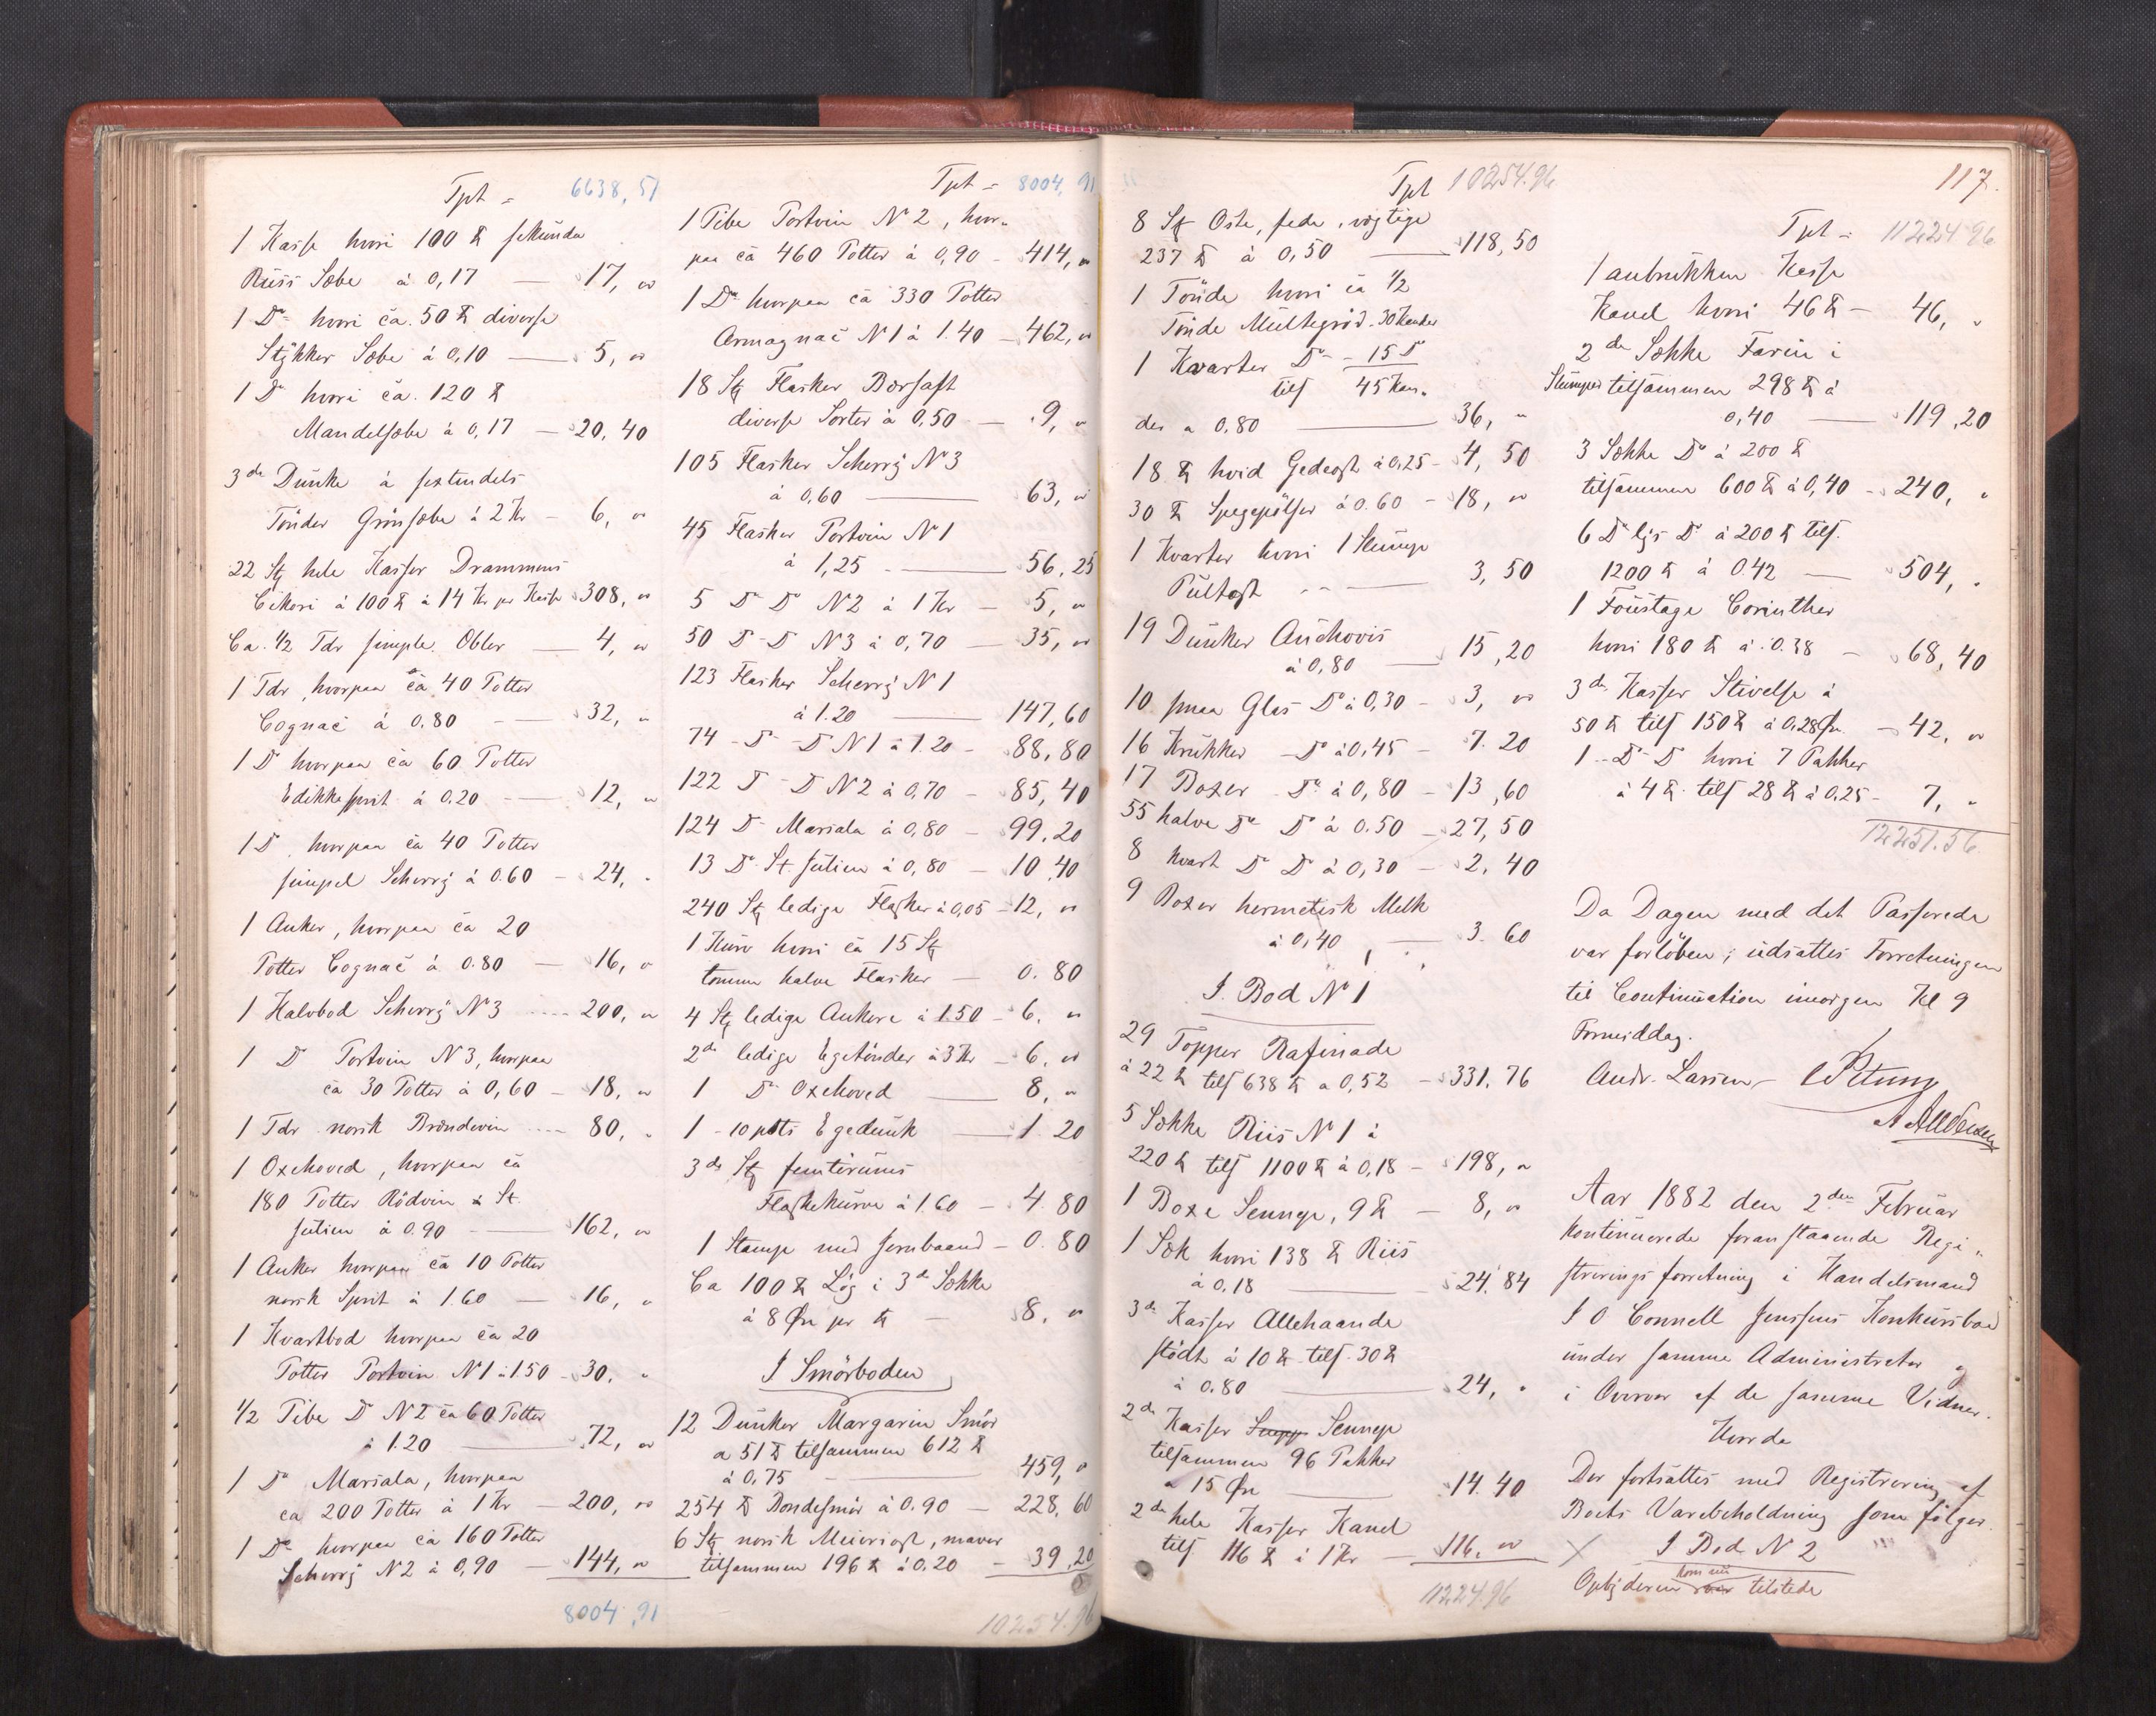 Tpt = 6638,51
1 Kasse hvori 100 ℔ sekunda
Russ Sæbe à 0,17 — 17, "
1 Do hvori ca. 50 ℔ diverse
Stykker Sæbe à 0,10 — 5, "
1 Do hvori ca. 120 ℔
Mandelsæbe à 0,17 — 20,40
3de Dunke à sextendels
Tønder Grønsæbe à 2 Kr — 6, "
22 Stk hele Kasser Drammens
Cikori à 100 ℔ à 14 Kr pr Kasse 308, "
Ca. 1/2 Tdr simple Obler — 4, "
1 Tdr, hvorpaa ca 40 Potter
Cognac à 0.80 — 32, "
1 Do hvorpaa ca 60 Potter
Edikkesprit à 0.20 — 12, "
1 Do, hvorpaa ca 40 Potter
simpel Scherry à 0.60 — 24, "
1 Anker, hvorpaa ca 20
Potter Cognac à 0.80 — 16, "
1 Halvbod Scherry No 3 ---- 200, "
1 Do Portvin No 3, hvorpaa
ca 30 Potter à 0,60 — 18, "
1 Tdr norsk Brændevin ---- 80, "
1 Oxehoved, hvorpaa ca
180 Potter Rødvin St.
Julien à 0.90 — 162, "
1 Anker hvorpaa ca 10 Potter
norsk Sprit à 1.60 — 16, "
1 Kvartbod hvorpaa ca 20
Potter Portvin No 1 à 1.50 - 30, "
1/2 Pibe Do No 2 ca 60 Potter
à 1.20 — 72, "
1 Do Marsala, hvorpaa
ca 200 Potter à 1 Kr — 200, "
1 Do hvorpaa ca 160 Potter
Scherry No 2 à 0,90 — 144, "
8004,91
Tpt = 8004,91
1 Pibe Portvin No 2, hvor-
paa ca 460 Potter à 0,90 - 414, "
1 Do hvorpaa ca 330 Potter
Armagnac No 1 à 1.40 — 462, "
18 Stk Flasker Bærsaft
diverse Sorter à 0,50 — 9, "
105 Flasker Scherry No 3
à 0,60 — 63, "
45 Flasker Portvin No 1
à 1,25 — 56,25
5 Do Do No 2 à 1 Kr — 5, "
50 Do Do No 3 à 0,70 — 35, "
123 Flasker Scherry No 1
à 1.20 — 147,60
74 - Do - Do No 1 à 1.20 - 88,80
122 Do - Do No 2 à 0,70 - 85,40
124 Do Marsala à 0,80 - 99.20
13 Do St. Julien à 0,80 - 10,40
240 Stk ledige Flasker à 0,05 - 12, "
1 Kurv hvori ca 15 Stk
tomme halve Flasker — 0.80
4 Stk ledige Ankere à 1.50 - 6, "
2de ledige Egetønder à 3 Kr - 6, "
1 Do Oxehoved — 8, "
1 - 10 potts Egedunk — 1.20
3de Stk femtirums
Flaskekurve à 1.60 — 4.80
1 Stampe med Jernbaand - 0.80
Ca 100 ℔ Løg i 3de Sække
à 8 Øre pr ℔ — 8, "
I Smørboden
12 Dunker Margarin Smør
a 51 ℔ tilsammen 612 ℔
à 0,75 — 459, "
254 ℔ Bondesmør à 0.90 — 228,60
6 Stk norsk Meieriost, maver
tilsammen 196 ℔ à 0.20 — 39,20
10254.96
Tpt 10254.96
8 Stk Oste, fede, vægtige
237 ℔ à 0,50 — 118,50
1 Tønde hvori ca 1/2
Tønde Multegrød - 30 Kander
1 Kvarter Do - 15 Do
tils 45 Kan-
der a 0.80 — 36, "
18 ℔ hvid Gedeost à 0,25 - 4,50
30 ℔ Spegepølser à 0.60 - 18, "
1 Kvarter hvori 1 Slump
Pultost — 3,50
19 Dunker Anchovis
à 0,80 — 15,20
10 smaa Glas Do à 0,30 - 3, "
16 Krukker - Do à 0,45 - 7.20
17 Boxer - Do à 0,80 - 13,60
55 halve Do Do à 0.50 - 27,50
8 kvart Do Do à 0,30 - 2.40
9 Boxer hermetisk Melk
à 0,40 — 3.60
I. Bod No 1
29 Topper Rafinade
à 22 ℔ tils 638 ℔ a 0,52 - 331.76
5 Sække Riis No 1 à
220 ℔ tils 1100 ℔ à 0,18 - 198, "
1 Boxe Sennep, 9 ℔ — 8, "
1 Sæk hvori 138 ℔ Riis
à 0.18 — 24.84
3de Kasser Allehaande
stødt à 10 ℔ tils. 30 ℔
à 0.80 — 24, "
2de Kasser Sennep
tilsammen 96 Pakker
a 15 Øre — 14.40
2de hele Kasser Kanel
tils 116 ℔ à 1 Kr — 116, "
11224.96
117.
Tpt = 11224.96
1 anbrukken Kasse
Kanel hvori 46 ℔ - 46, "
2de Sække Farin i
Slumper tilsammen 298 ℔ à
0,40 — 119,20
3 Sække Do à 200 ℔
tilsammen 600 ℔ à 0,40 - 240, "
6 Do lys Do à 200 ℔ tils.
1200 ℔ à 0.42 — 504, "
1 Foustage Corinther
hvori 180 ℔ à 0.38 — 68,40
3de Kasser Stivelse à
50 ℔ tils 150 ℔ à 0,28 Øre — 42, "
1 - Do - Do hvori 7 Pakker
à 4 ℔ tils 28 ℔ à 0.25 - 7, "
12251.56
Da Dagen med det Passerede
var forløben; udsattes Forretningen
til Continuation imorgen Kl 9
Formiddag.
Andr. Larsen
Aar 1882 den 2den Februar
kontinuerede foranstaaende Regi-
streringsforretning i Handelsmand
J O Connell Jenssens Konkursbo
under samme Administrator og
i Overvær af de samme Vidner.
Hvorda
Der fortsattes med Registrering af
Boets Varebeholdning som følger
I Bod No 2
Opbyderen kom nu tilstede